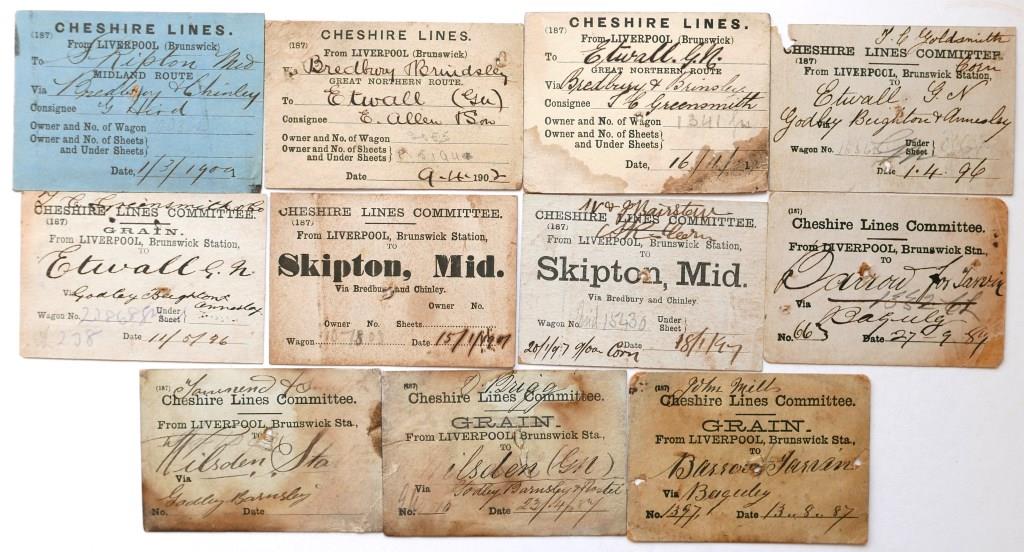 CHESHIRE LINES.
(187)
From LIVERPOOL (Brunswick)
To Skipton Mid
MIDLAND ROUTE
Via Bredbury & Chinley
Consignee G Hird
Owner and No. of Wagon
Owner and No. of Sheets
and Under Sheets
Date, 1/3/1900
CHESHIRE LINES.
(187)
From LIVERPOOL (Brunswick)
Via Bredbury Brinsley
GREAT NORTHERN ROUTE.
To Etwall (Gn)
Consignee E. Allen & Son
Owner and No. of Wagon
Owner and No. of Sheets
and Under Sheets
Date 9.4.1902
CHESHIRE LINES.
(187)
From LIVERPOOL (Brunswick)
To Etwall. G.N.
GREAT NORTHERN ROUTE
Via Bredbury & Brinsley
Consignee T C Greensmith
Owner and No. of Wagon
Owner and No. of Sheets
and Under Sheets
Date, 16/11/
T. C Goldsmith
CHESHIRE LINES COMMITTEE.
(187) Corn
From LIVERPOOL, Brunswick Station,
TO
Etwall G. N
Via Godley Beighton & Annesley
Wagon No. Under Sheet
Date 1.4.96
T. C. Greensmith & Co
CHESHIRE LINES COMMITTEE.
(187)
GRAIN.
From LIVERPOOL, Brunswick Station,
TO
Etwall G. N
Via Godley Beighton & Annesley
Wagon No. Under Sheet
238
Date 11/5/96
CHESHIRE LINES COMMITTEE.
(187)
From LIVERPOOL, Brunswick Station,
TO
Skipton, Mid.
Via Bredbury and Chinley.
Owner No.
Owner No. Sheets
Wagon Date 15/1/1907
CHESHIRE LINES COMMITTEE.
(187)
From LIVERPOOL, Brunswick Station,
TO
Skipton, Mid.
Via Bredbury and Chinley.
Owner No.
Wagon No. 15430 Under Sheet
20/1/97 Corn Date 18/1/97
Cheshire Lines Committee.
(187)
From LIVERPOOL, Brunswick Stn.,
TO
Barrow for Tarvin
Via
Baguley
No. 663 Date 27-9-89
Townend & Co
(187)
Cheshire Lines Committee.
From LIVERPOOL, Brunswick Sta.,
TO
Wilsden Sta
Via
Godley Barnsley
No. Date
D. Brigg
(187)
Cheshire Lines Committee.
GRAIN.
From LIVERPOOL, Brunswick Sta.,
TO
Wilsden (GN)
Via Godley Barnsley &
No. Date 23/4/
John Mill
(187)
Cheshire Lines Committee.
GRAIN.
From LIVERPOOL, Brunswick Sta.,
TO
Barrow Tarvin
Via Baguley
No. 1397 Date 13.8.87